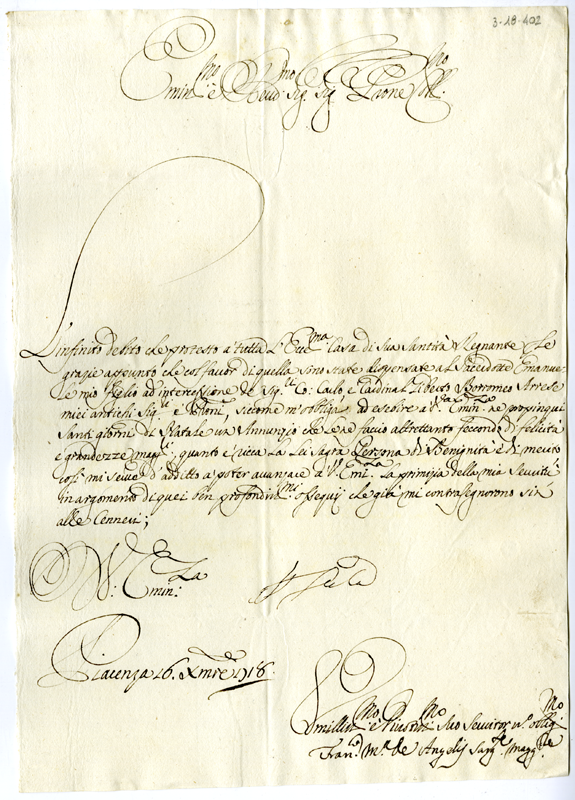 3-18-402
Emin.mo è Revd.mo Sig. Sig. Prone Coll.mo
L'infinito debito che protesto a' tutta L'Ecc.ma Casa di Sua Santità Regnante Le
grazie appunto che col favor di quella sino state dispensate al Sacerdote Emanue-
le mio figlio ad intercessione de Sig.ri Co: Carlo, e Cardinal Giberto Borromeo Arese
miei antichi Sig.ri e Proni, siccome m'obliga ad esebire a V.ra Emin.za ne prossimi
Santi giorni di Natale un Annunzio che lene faccio altrettanto fecondo di felicità
e grandezze magg.ri, quanto è ricca La lei Sagra Persona di Benignità e di merito
così mi serve d'additto a poter avanzare a V. Em.za La primizia della mia Servitù
in argomento di quei ben profondiss.mi ossequij che già mi contrasegnorono sin
alle Cenneri;
V: Emin:za
Piacenza 16. Xmre 1718.
Umilliss.mo e Divotiss.mo Suo Servitor, v.o oblig.mo
Fran.co M.a de Angelij Sarg.te Magg.re